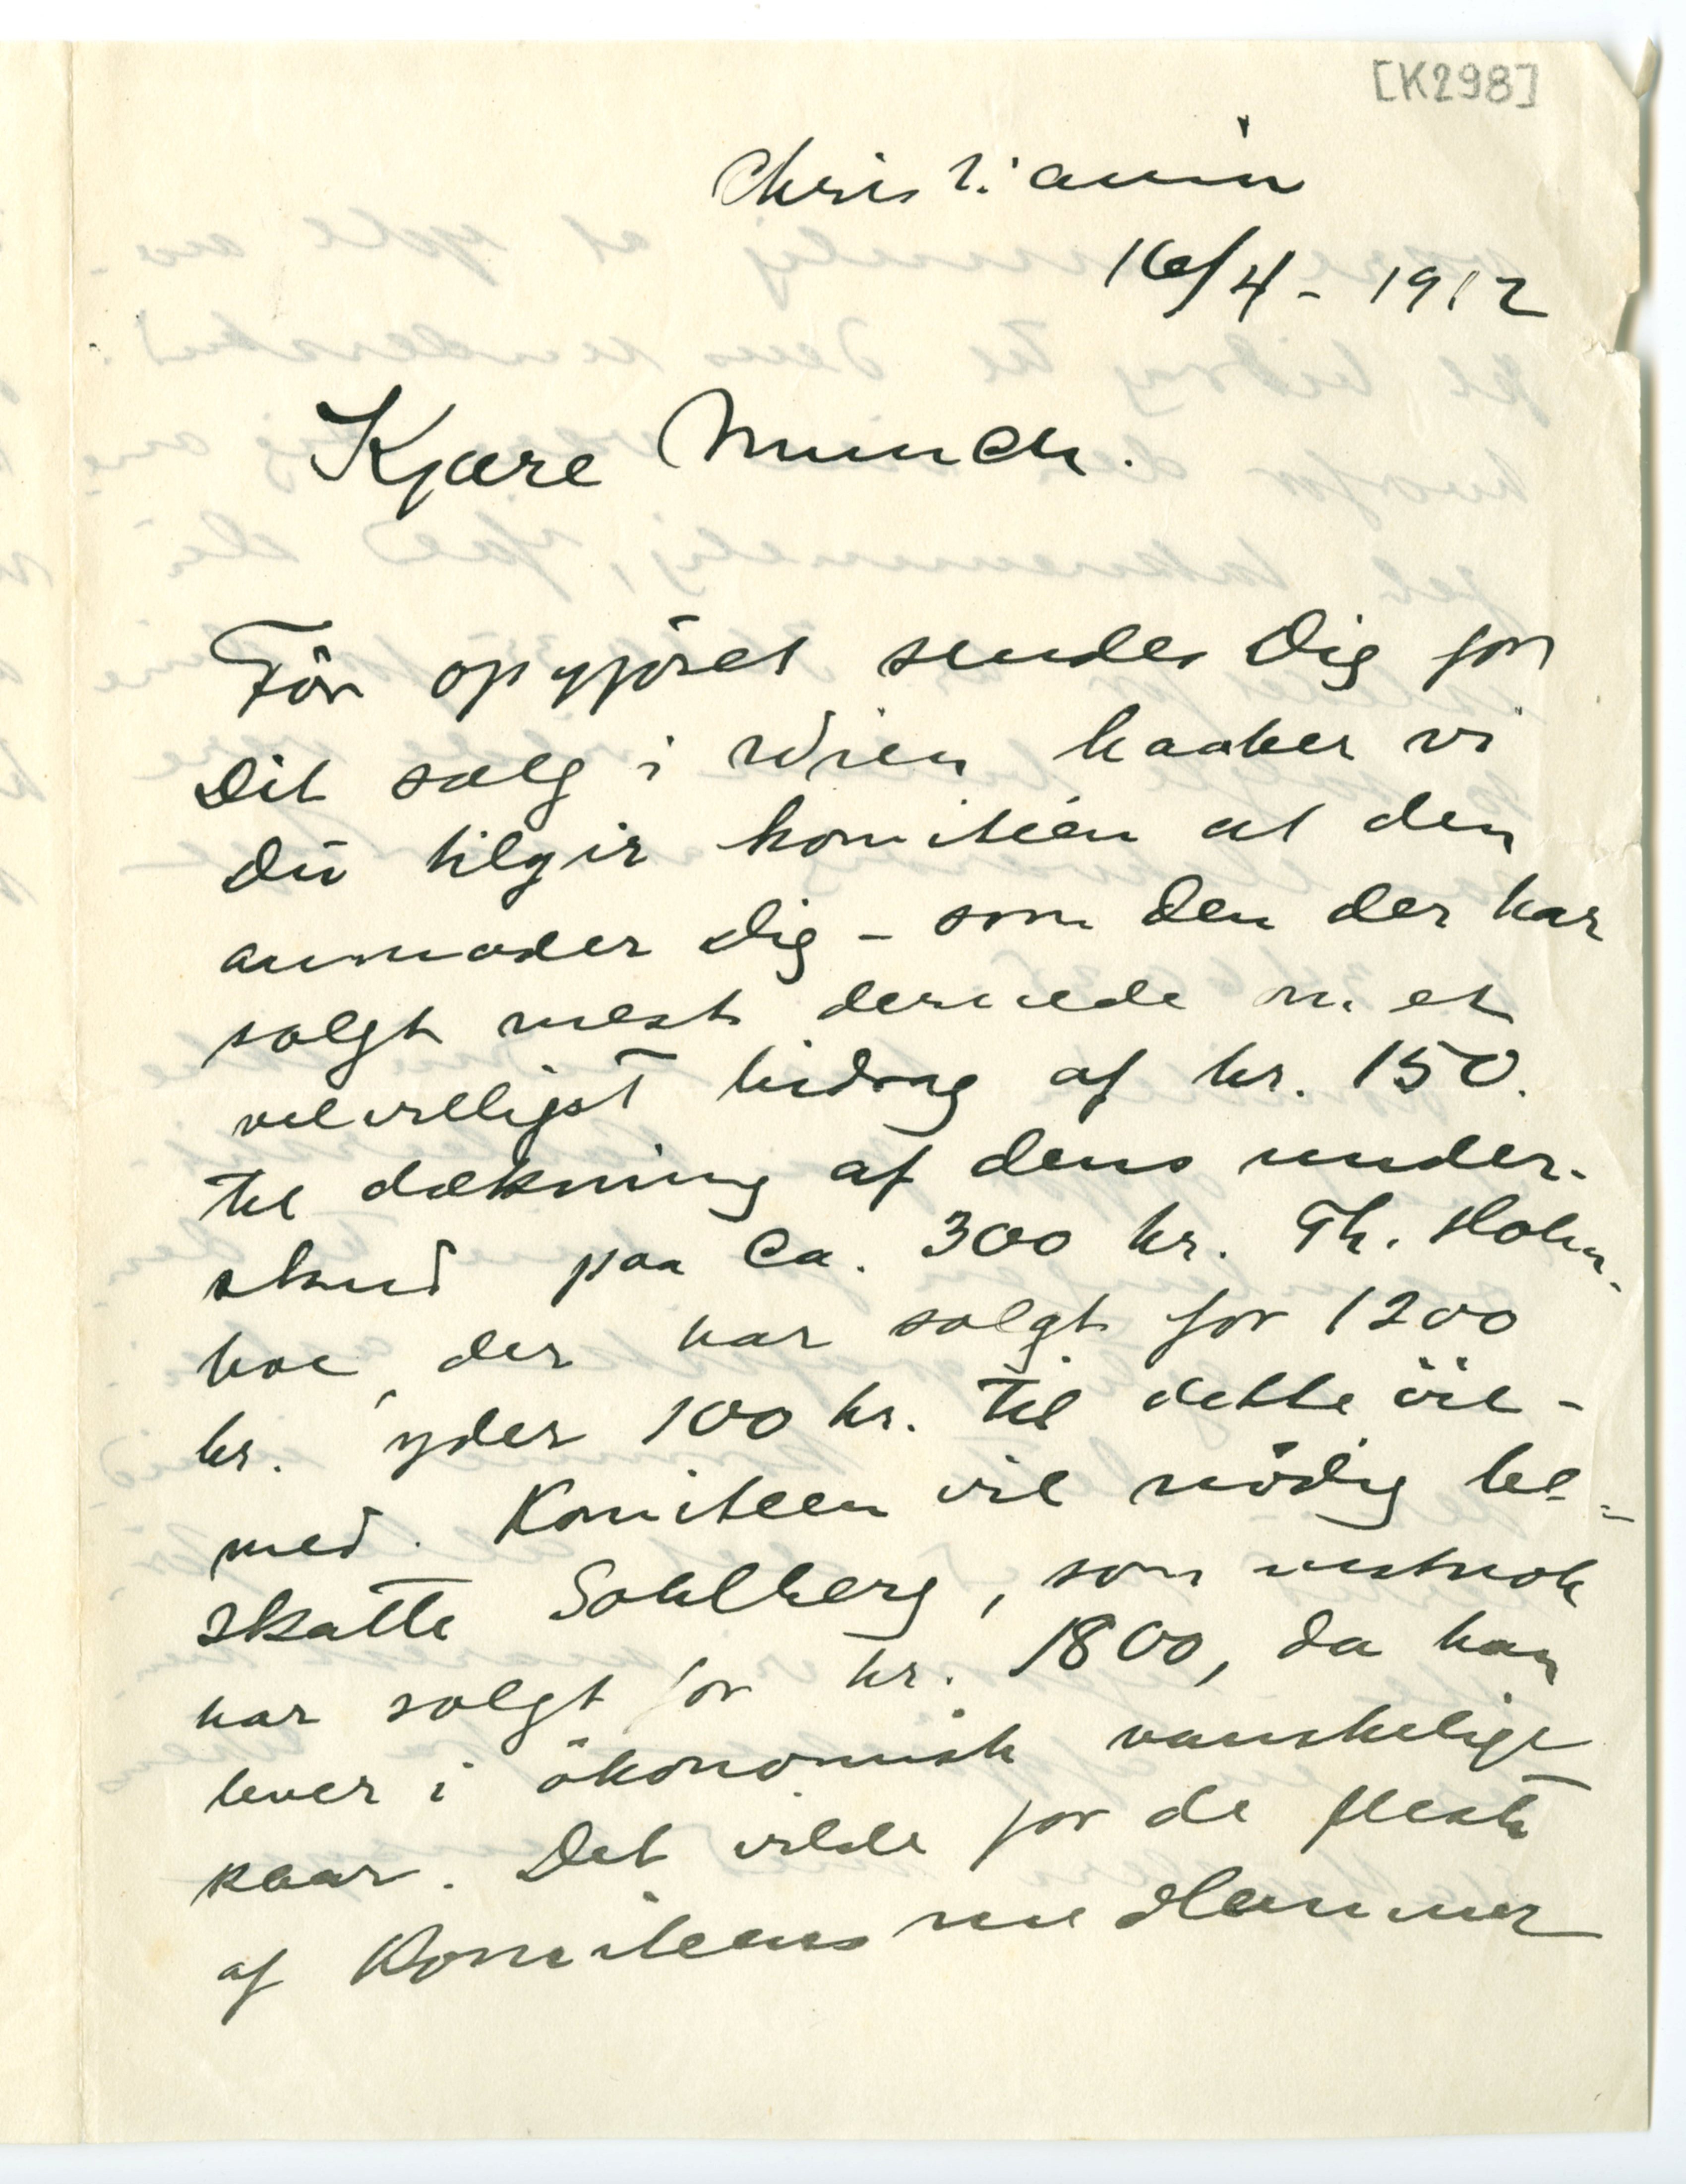 [K298]
Christiania
16/4 - 1912
Kjære Munch.
Før opgjöret sendes Dig for
Dit salg i Wien haaber vi
Du tilgir komitéen at den
anmoder Dig – som den der har
solgt mest dernede om et
velvilligst bidrag af kr. 150.
til dækning af dens under-
skud paa Ca. 300 kr. Th. Holm-
boe, der har solgt for 1200
kr. yder 100 kr. til dette öie-
med. Komiteen vil nödig be-
skatte Sohlberg, som vistnok
har solgt for kr. 1800, da han
lever i ökonomisk vanskelige
kaar. Det vilde for de fleste
af Komiteens medlemmer